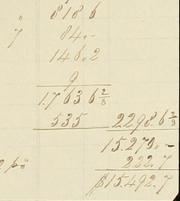 " 818 6
7 84.-
146.2
9
1763 6 2/3
535 2298 6 2/3
15.270.-
222.7
$15.492.7